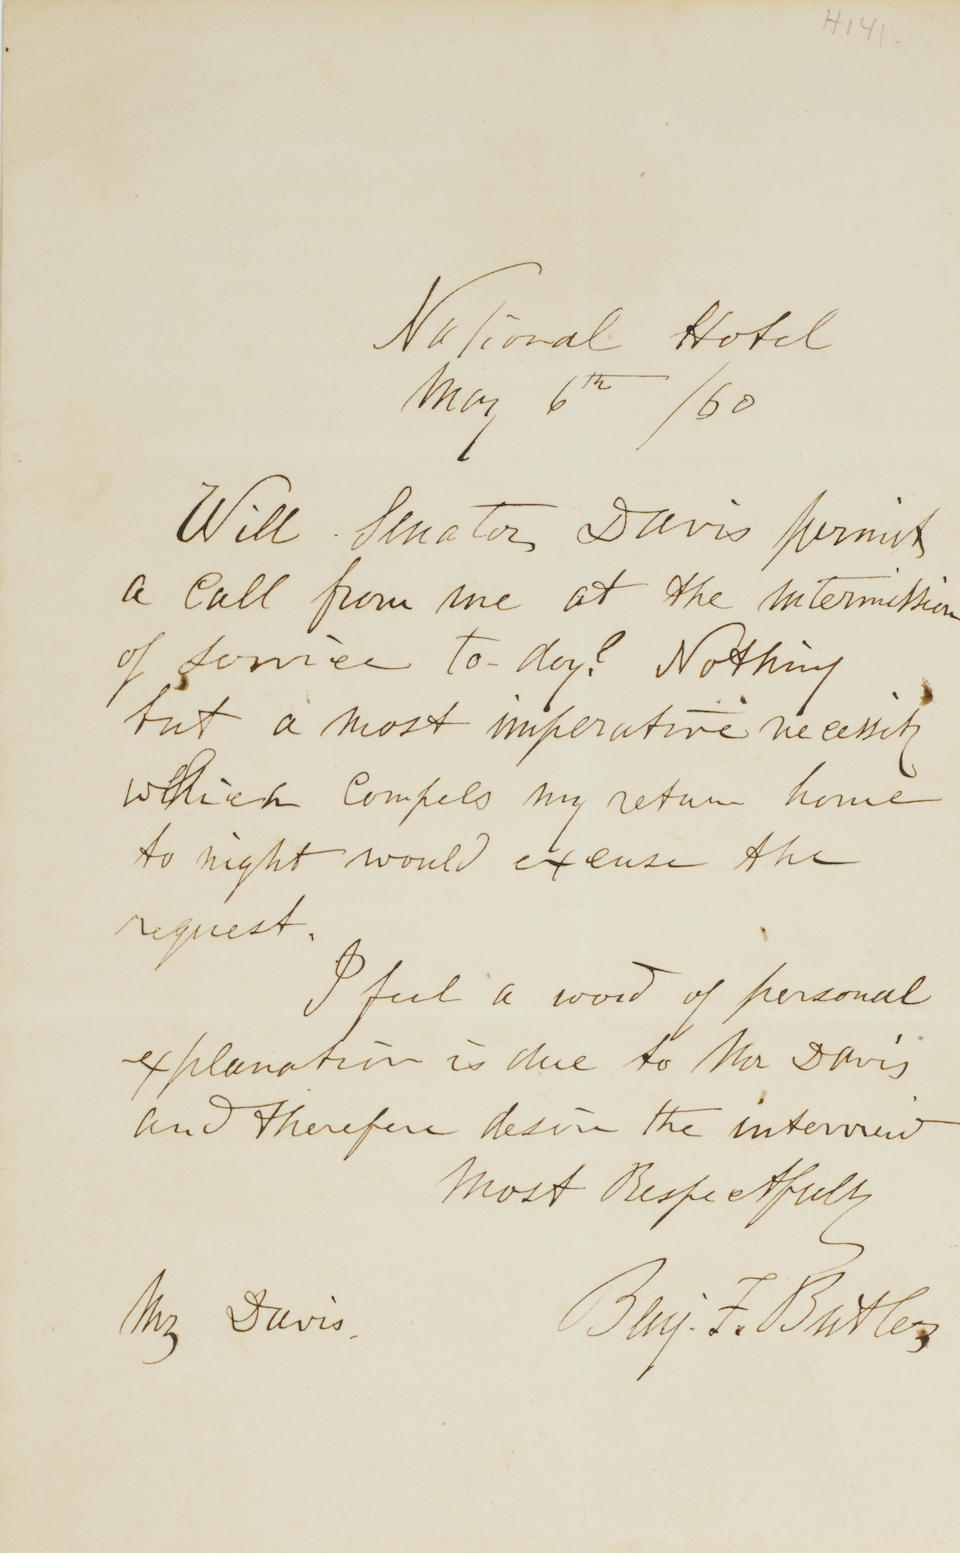 H141.
National Hotel
May 6th /60
Will Senator Davis permit
a call from me at the intermission
of service to-day? Nothing
but a most imperative necessity
which compels my return home
to night would excuse the
request.
I feel a word of personal
explanation is due to Mr Davis
and therefore desire the interview
Most Respectfully
Mr Davis. Benj. F. Butler